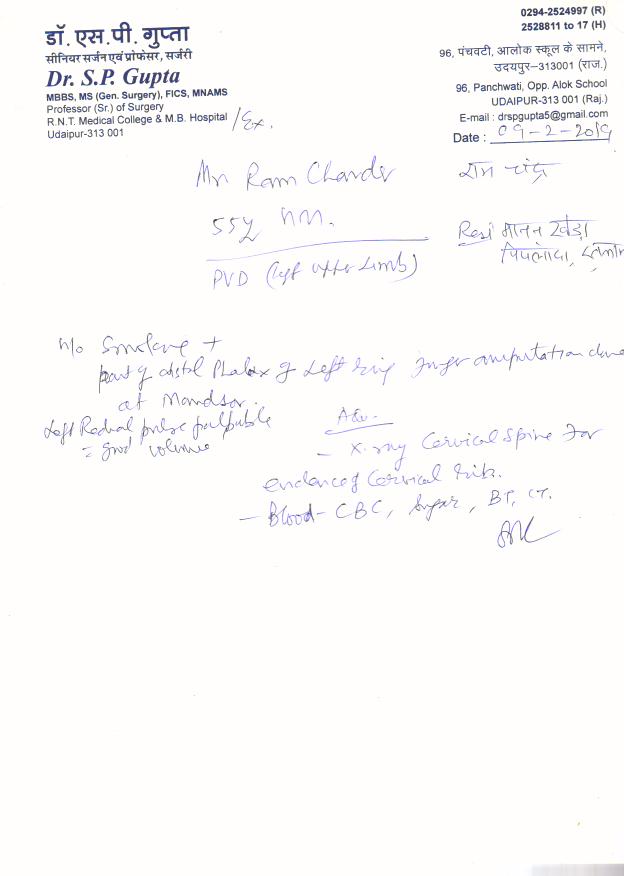 डॉ. एस.पी. गुप्ता
सीनियर सर्जन एवं प्रोफेसर, सर्जरी
Dr. S.P. Gupta
MBBS, MS (Gen. Surgery), FICS, MNAMS
Professor (Sr.) of Surgery
R.N.T. Medical College & M.B. Hospital /Ex.
Udaipur-313 001
0294-2524997 (R)
2528811 to 17 (H)
96, पंचवटी, आलोक स्कूल के सामने,
उदयपुर–313001 (राज.)
96, Panchwati, Opp. Alok School
UDAIPUR-313 001 (Raj.)
E-mail : drspgupta5@gmail.com
Date : 09-2-2019
Mr Ram Chander
राम चंद्र
55y
Resi
पिपलोदा,
PVD (left upper Limb)
H/o Smoking +
part of distal Phalax of Left ring finger amputation done
at Mandsor.
Left Radial pulse palpable
= good volume
Adv.
- X-ray Cervical Spine For
evidence of Cervical rib.
- Blood - CBC, Sugar, BT, CT.